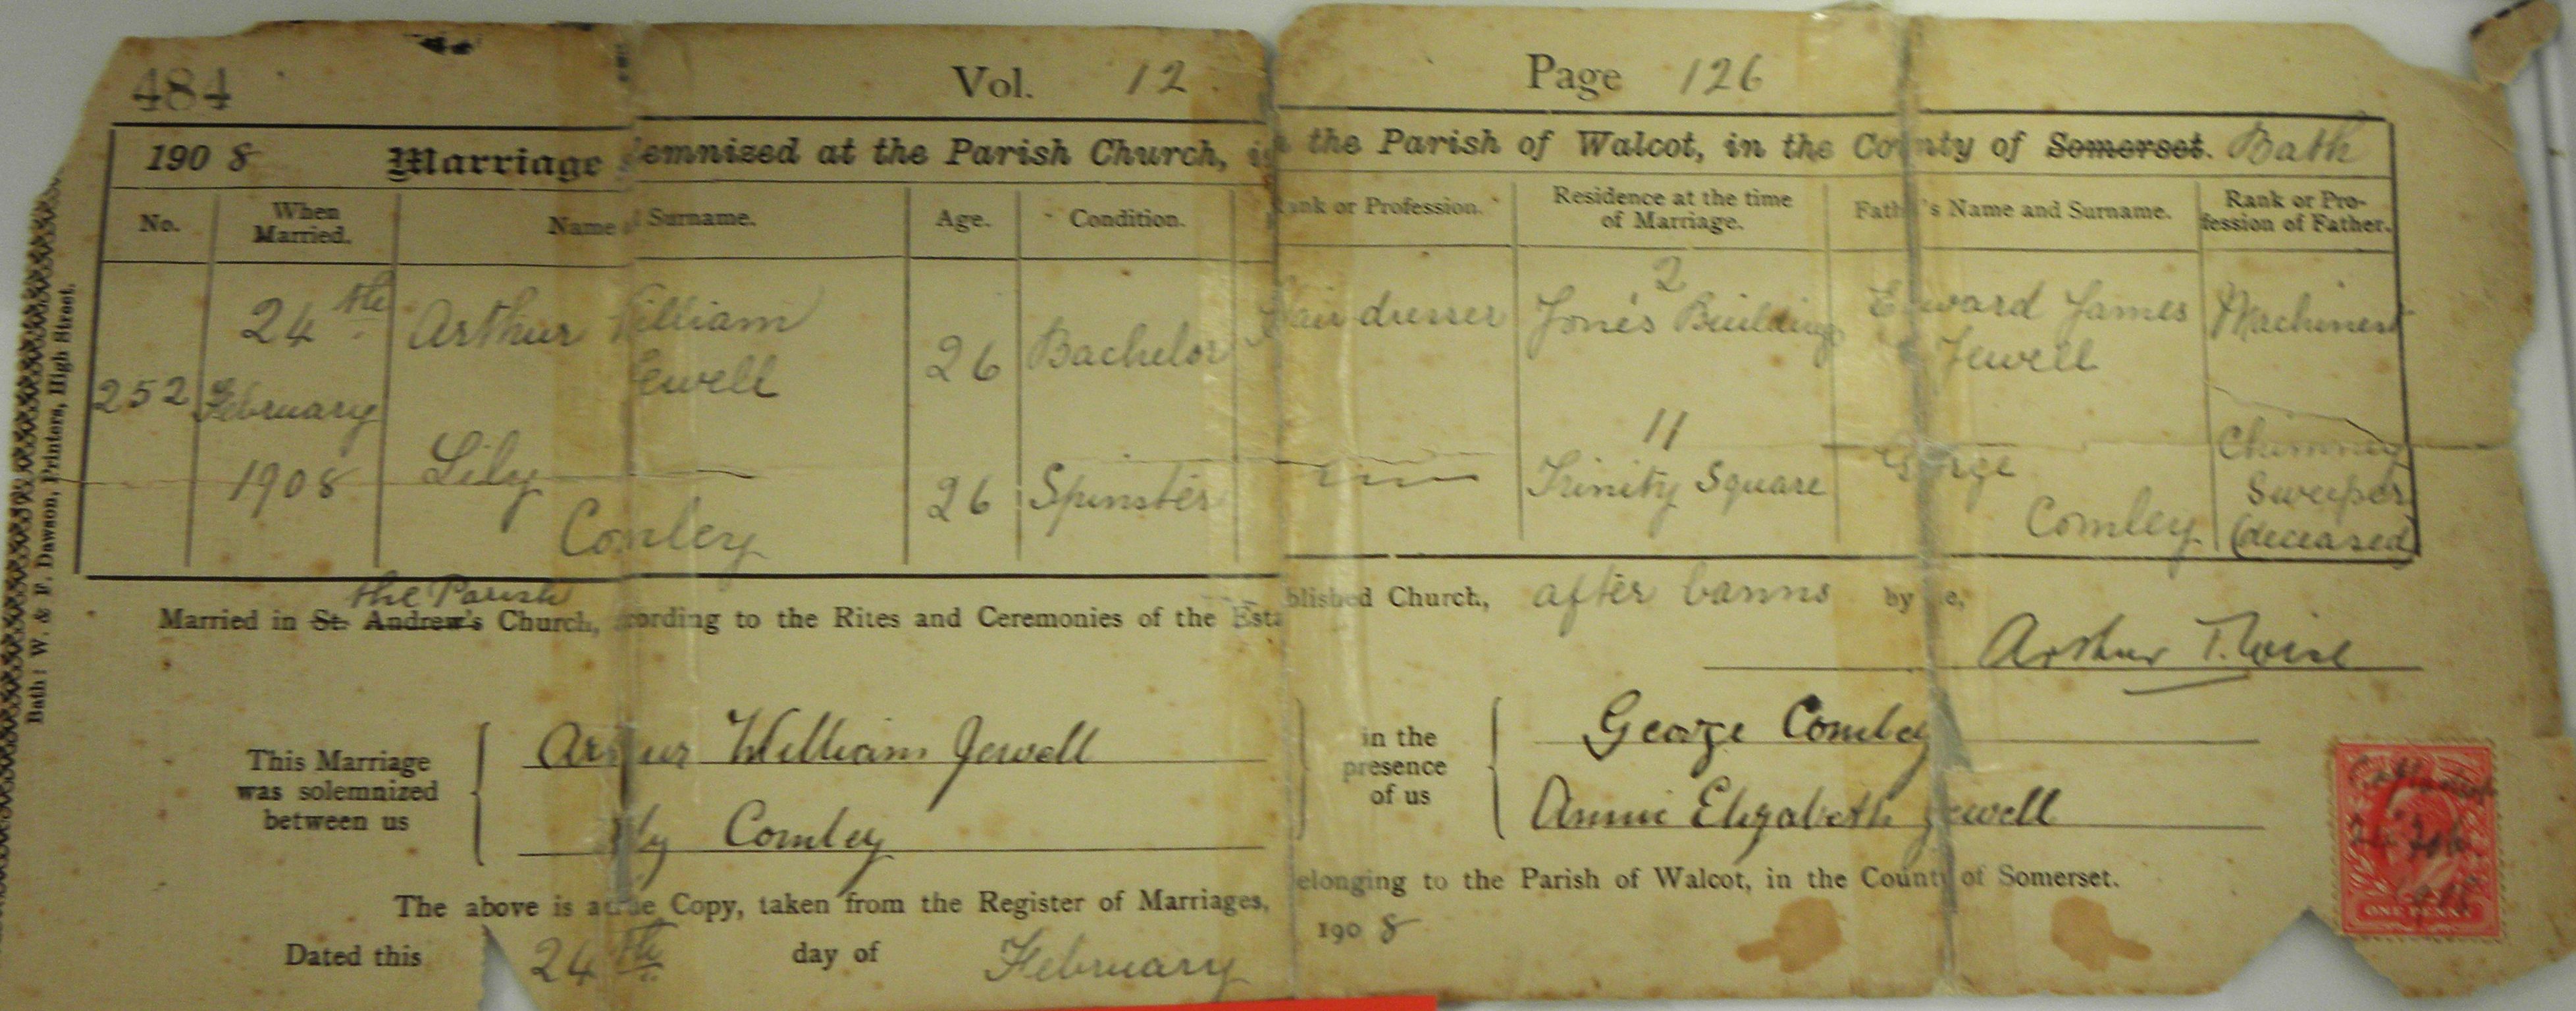 484 Vol. 12 Page 126
1908 Marriage solemnized at the Parish Church, in the Parish of Walcot, in the County of Somerset. Bath
No. When Married. Name and Surname. Age. Condition. Rank or Profession. Residence at the time of Marriage. Father's Name and Surname. Rank or Profession of Father.
252 24th February 1908
Arthur William Jewell 26 Bachelor Hairdresser 2 Jone's Buildings Edward James Jewell Machinest
Lily Comley 26 Spinster 11 Trinity Square George Comley Chimney Sweeper (deceased)
the Parish
Married in St. Andrew's Church, according to the Rites and Ceremonies of the Established Church, after banns by me,
Arthur T.
This Marriage was solemnized between us
Arthur William Jewell
Lily Comley
in the presence of us
George Comley
Annie Elizabeth Jewell
The above is a true Copy, taken from the Register of Marriages, belonging to the Parish of Walcot, in the County of Somerset.
Dated this 24th day of February 1908
ONE PENNY
Bath: W. & F. Dawson, Printers, High Street.